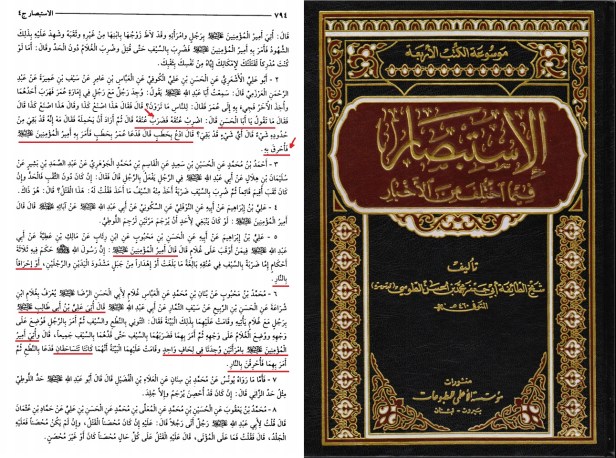 ٧٩٤
الاستبصار ج٤
قال: أُتي أمير المؤمنين عليه السلام برجل وامرأته وقد لاط زوجها بابنها من غيره وثقبه وشهد عليه بذلك
الشهود فأمر به أمير المؤمنين عليه السلام فضرب بالسيف حتى قتل وضرب الغلام دون الحد وقال: أما لو
كنت مدركاً لقتلتك لإمكانك إياه من نفسك بثقبك.
٢ - أبو علي الأشعري عن الحسن بن علي الكوفي عن العباس بن عامر عن سيف بن عميرة عن عبد
الرحمن العرزمي قال: سمعت أبا عبد الله عليه السلام يقول: وجد رجل مع رجل في إمارة عمر فهرب أحدهما
وأخذ الآخر فجيء به إلى عمر فقال: للناس ما ترون؟ قال فقال هذا اصنع كذا وقال هذا اصنع كذا قال
فقال ما تقول يا أبا الحسن قال: اضرب عنقه فضرب عنقه قال ثم أراد أن يحمله فقال مه إنه قد بقي من
حدوده شيء قال أي شيء قد بقي؟ قال ادع بحطب قال فدعا عمر بحطب فأمر به أمير المؤمنين عليه السلام
فأحرق به.
٣ - أحمد بن محمد عن الحسين بن سعيد عن القاسم بن محمد الجوهري عن عبد الصمد بن بشير عن
سليمان بن هلال عن أبي عبد الله عليه السلام في الرجل يفعل بالرجل قال فقال: إن كان دون الثقب فالحد وإن
كان ثقب أقيم قائماً ثم ضرب بالسيف ضربة أخذ منه السيف ما أخذ فقلت له: هذا القتل؟ قال: هو ذاك.
٤ - علي بن إبراهيم عن أبيه عن النوفلي عن السكوني عن أبي عبد الله عليه السلام عن آبائه قال قال
أمير المؤمنين عليه السلام: لو كان ينبغي لأحد أن يرجم مرتين لرجم اللوطي.
٥ - علي بن إبراهيم عن أبيه عن الحسن بن محبوب عن ابن رئاب عن مالك بن عطية عن أبي
عبد الله عليه السلام فيمن أوقب على غلام قال قال أمير المؤمنين عليه السلام: إن رسول الله حكم فيه ثلاثة
أحكام إما ضربة بالسيف في عنقه بالغة ما بلغت أو إهداراً من جبل مشدود اليدين والرجلين، أو إحراقاً
بالنار.
٦ - محمد بن محبوب عن بنان بن محمد عن العباس غلام لأبي الحسن الرضا عليه السلام يعرف بغلام ابن
شراعة عن الحسن بن الربيع عن سيف التمار عن أبي عبد الله عليه السلام قال أتي علي بن أبي طالب عليه السلام
برجل مع غلام يأتيه وقامت عليهما بذلك البينة فقال: ائتوني بالنطع والسيف ثم أمر بالرجل فوضع على
وجهه ووضع الغلام على وجهه ثم أمر بهما فضربهما بالسيف حتى قدهما بالسيف جميعاً، قال وأتي أمير
المؤمنين بامرأتين وجدتا في لحاف واحد وقامت عليهما البينة أنهما كانتا تتساحقان فدعا بالنطع ثم
أمر بهما فأحرقن بالنار.
٧ - فأما ما رواه يونس عن محمد بن سنان عن العلاء بن الفضيل قال قال أبو عبد الله عليه السلام حد اللوطي
مثل حد الزاني قال: إن كان قد أحصن يرجم وإلا جلد.
٨ - محمد بن يعقوب عن الحسين بن محمد عن معلى بن محمد عن الحسن بن علي عن حماد بن عثمان
قال قلت لأبي عبد الله عليه السلام رجل أتى رجلاً قال: عليه إن كان محصناً القتل، وإن لم يكن محصناً فعليه
الجلد، قال فقلت فما على المؤتى، قال: عليه القتل على كل حال محصناً كان أو غير محصن.
موسوعة الكتب الأربعة
الاستبصار
فيما اختلف من الأخبار
تأليف
شيخ الطائفة أبي جعفر محمد بن الحسن الطوسي
المتوفى ٤٦٠ هـ
منشورات
مؤسسة الأعلمي للمطبوعات
بيروت - لبنان